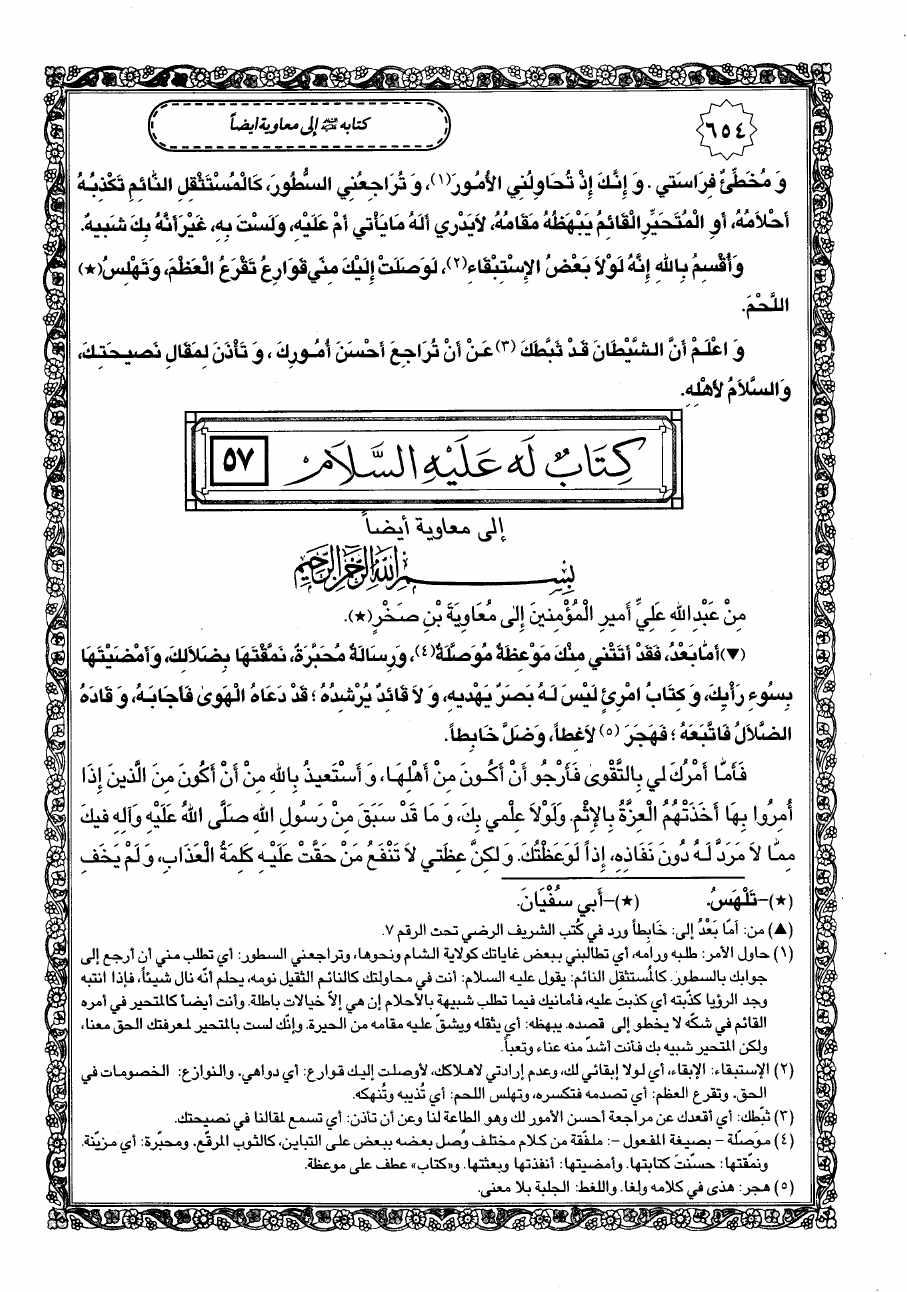 ٦٥٤
كتابه إلى معاوية ايضاً
وَ مُخَطِّئٌ فِرَاسَتي. وَ إِنَّكَ إِذْ تُحَاوِلُنِي الأُمُورَ(١)، وَ تُرَاجِعُنِي السُّطُورَ، كَالْمُسْتَثْقِلِ النَّائِمِ تَكْذِبُهُ
أَحْلَامُهُ، أَوِ الْمُتَحَيِّرِ الْقَائِمِ يَبْهَظُهُ مَقَامُهُ، لاَيَدْري أَلَهُ مَايَأْتي أَمْ عَلَيْهِ، وَلَسْتَ بِهِ، غَيْرَ أَنَّهُ بِكَ شَبيهٌ.
وَأُقْسِمُ بِاللهِ إِنَّهُ لَوْلاَ بَعْضُ الإِسْتِبْقَاءِ(٢)، لَوَصَلَتْ إِلَيْكَ مِنّي قَوَارِعُ تَقْرَعُ الْعَظْمَ، وَتَهْلِسُ(★)
اللَّحْمَ.
وَ اعْلَمْ أَنَّ الشَّيْطَانَ قَدْ ثَبَّطَكَ (٣) عَنْ أَنْ تُرَاجِعَ أَحْسَنَ أُمُورِكَ، وَ تَأْذَنَ لِمَقَالِ نَصيحَتِكَ،
وَالسَّلاَمُ لأَهْلِهِ.
كِتَابٌ لَه عَلَيْهِ السَّلَام ٥٧
إلى معاوية أيضاً
بِسْمِ اللهِ الرَّحْمٰنِ الرَّحِيمِ
مِنْ عَبْدِاللهِ عَلِيٍّ أَميرِ الْمُؤْمِنينَ إِلى مُعَاوِيَةَ بْنِ صَخْرٍ(★).
(▼) أَمَّابَعْدُ، فَقَدْ أَتَتْني مِنْكَ مَوْعِظَةٌ مُوَصَّلَةٌ(٤)، وَرِسَالَةٌ مُحَبَّرَةٌ، نَمَّقْتَهَا بِضَلاَلِكَ، وَأَمْضَيْتَهَا
بِسُوءِ رَأْيِكَ، وَ كِتَابُ امْرِئٍ لَيْسَ لَهُ بَصَرٌ يَهْديهِ، وَ لاَ قَائِدٌ يُرْشِدُهُ؛ قَدْ دَعَاهُ الْهَوىٰ فَأَجَابَهُ، وَ قَادَهُ
الضَّلاَلُ فَاتَّبَعَهُ؛ فَهَجَرَ (٥) لاَغِطاً، وَضَلَّ خَابِطاً.
فَأَمَّا أَمْرُكَ لي بِالتَّقْوىٰ فَأَرْجُو أَنْ أَكُونَ مِنْ أَهْلِهَا، وَ أَسْتَعيذُ بِاللهِ مِنْ أَنْ أَكُونَ مِنَ الَّذينَ إِذَا
أُمِرُوا بِهَا أَخَذَتْهُمُ الْعِزَّةُ بِالإِثْمِ. وَلَوْلاَ عِلْمي بِكَ، وَ مَا قَدْ سَبَقَ مِنْ رَسُولِ اللهِ صَلَّى اللهُ عَلَيْهِ وَآلِهِ فيكَ
مِمَّا لاَ مَرَدَّ لَهُ دُونَ نَفَاذِهِ، إِذاً لَوَعَظْتُكَ. وَ لكِنَّ عِظَتي لاَ تَنْفَعُ مَنْ حَقَّتْ عَلَيْهِ كَلِمَةُ الْعَذَابِ، وَ لَمْ يَخَفِ
(★)-تَلْهَسُ. (★)-أَبي سُفْيَانَ.
(▲) من: أمّا بَعْدُ إلى: خَابِطاً ورد في كُتب الشريف الرضي تحت الرقم ٧.
(١) حاول الأمر: طلبه ورامه، أي تطالبني ببعض غاياتك كولاية الشام ونحوها، وتراجعني السطور: أي تطلب مني أن أرجع إلى
جوابك بالسطور. كالمُستثقل النائم: يقول عليه السلام: أنت في محاولتك كالنائم الثقيل نومه، يحلم أنّه نال شيئاً، فإذا انتبه
وجد الرؤيا كذّبته أي كذبت عليه، فأمانيك فيما تطلب شبيهة بالأحلام إن هي إلاّ خيالات باطلة. وأنت أيضاً كالمتحير في أمره
القائم في شكّه لا يخطو إلى قصده. يبهظه: أي يثقله ويشقّ عليه مقامه من الحيرة. وإنّك لست بالمتحير لمعرفتك الحق معنا،
ولكن المتحير شبيه بك فأنت أشدّ منه عناء وتعباً.
(٢) الإستبقاء: الإبقاء، أي لولا إبقائي لك، وعدم إرادتي لاهلاكك، لأوصلت إليك قوارع: أي دواهي، والنوازع: الخصومات في
الحق، وتقرع العظم: أي تصدمه فتكسره، وتهلس اللحم: أي تُذيبه وتُنهكه.
(٣) ثبّطك: أي أقعدك عن مراجعة أحسن الأمور لك وهو الطاعة لنا وعن أن تأذن: أي تسمع لمقالنا في نصيحتك.
(٤) موَصّلة - بصيغة المفعول -: ملفّقة من كلام مختلف وُصل بعضه ببعض على التباين، كالثوب المرقّع، ومحبّرة: أي مزيّنة.
ونمّقتها: حسّنتَ كتابتها. وأمضيتها: أنفذتها وبعثتها. و«كتاب» عطف على موعظة.
(٥) هجر: هذى في كلامه ولغا. واللغط: الجلبة بلا معنى.